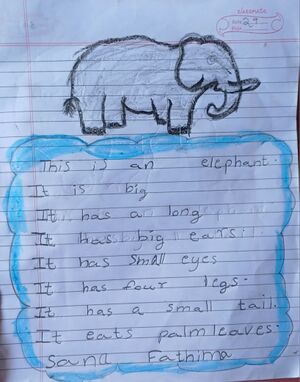 classmate
Date 29
Page
This is an elephant.
It is big
It has a long
It has big ears.
It has small eyes
It has four legs.
It has a small tail.
It eats palm leaves.
Sana Fathima